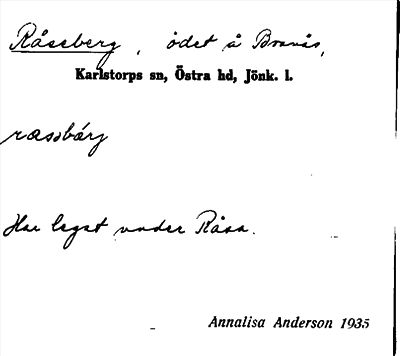 Råseberg, ödet å Branås,
Karlstorps sn, Östra hd, Jönk. l.
Har legat under Råsa.
Annalisa Anderson 1935